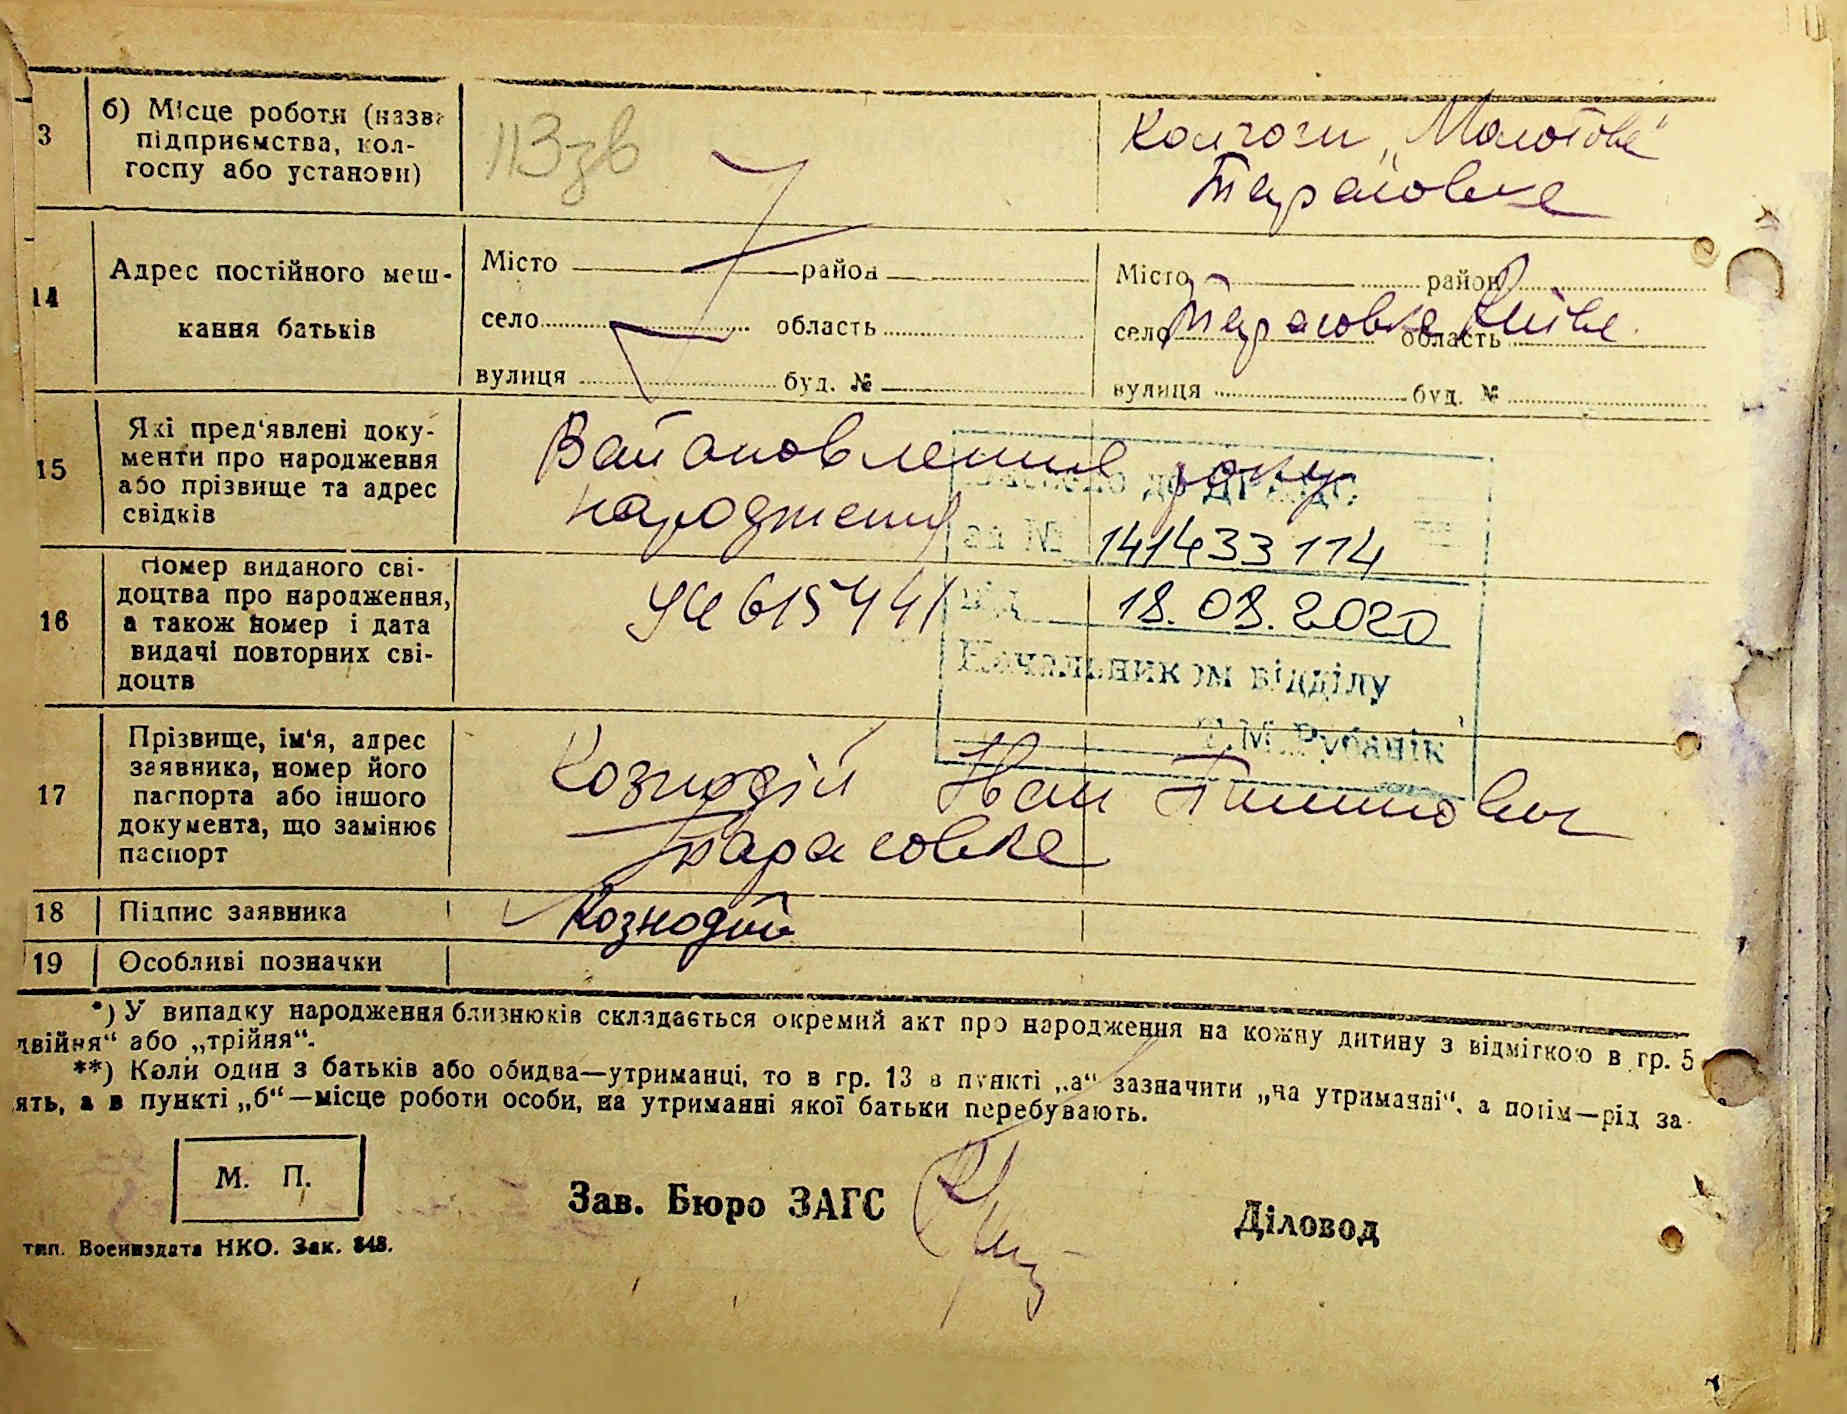 3
б) Місце роботи (назва
підприємства, кол-
госпу або установи)
113зв
Колгосп „Молотова“
Тарасовка
14
Адрес постійного меш-
кання батьків
Місто район
село область
вулиця буд. №
Місто район
село Тарасовка область
вулиця буд. №
15
Які пред'явлені доку-
менти про народження
або прізвище та адрес
свідків
року
народження
до ДРАЦС
за № 141433114
від 18.08.2020
Начальником відділу
Т.М. Рубанік
16
Номер виданого сві-
доцтва про народження,
а також номер і дата
видачі повторних сві-
доцтв
615441
17
Прізвище, ім'я, адрес
заявника, номер його
паспорта або іншого
документа, що замінює
паспорт
Кознодій Іван
Тарасовка
18 Підпис заявника
Кознодій
19 Особливі позначки
*) У випадку народження близнюків складається окремий акт про народження на кожну дитину з відміткою в гр. 5
двійня“ або „трійня“.
**) Коли один з батьків або обидва—утриманці, то в гр. 13 в пункті „а“ зазначити „на утриманні“, а потім—рід за-
ять, а в пункті „б“—місце роботи особи, на утриманні якої батьки перебувають.
М. П.
Зав. Бюро ЗАГС
Діловод
тип. Воениздата НКО. Зак. 848.